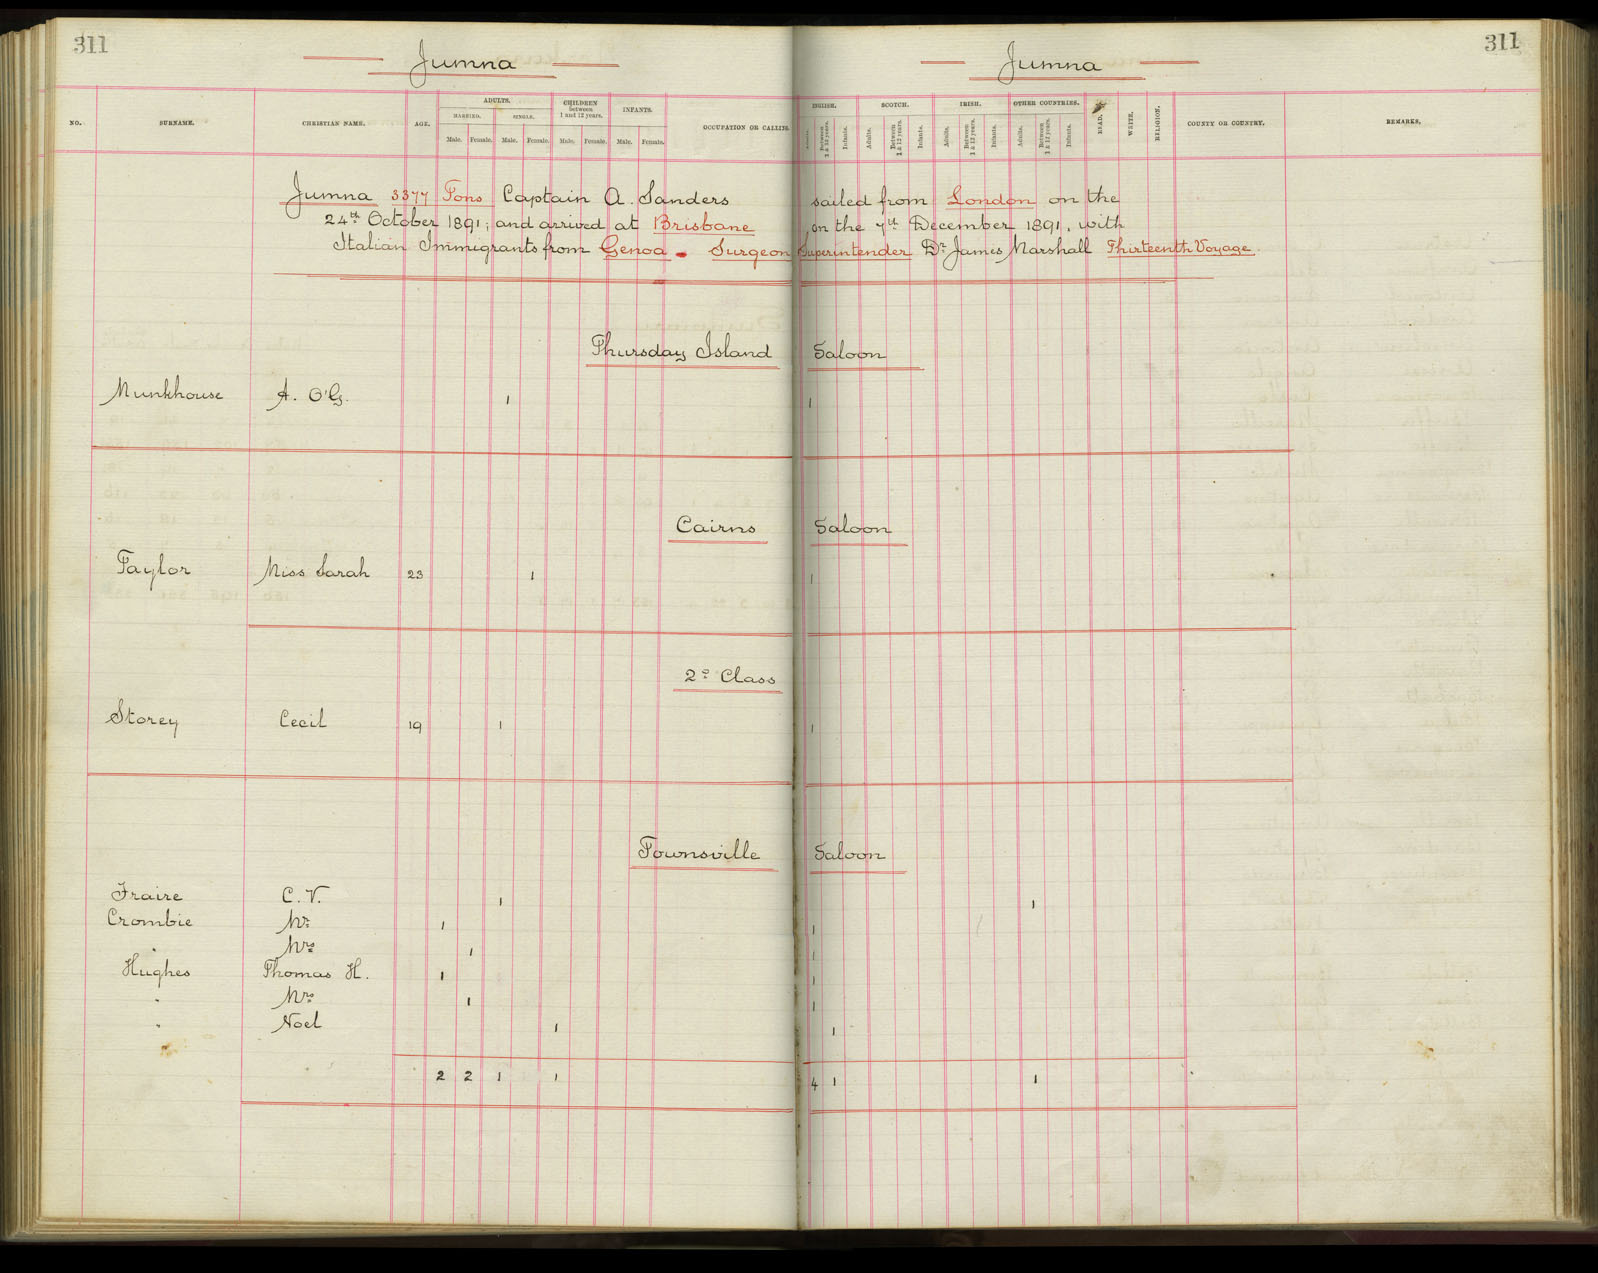 311 311
Jumna Jumna
NO. SURNAME. CHRISTIAN NAME. AGE. ADULTS. MARRIED. SINGLE. Male. Female. Male. Female. CHILDREN between 1 and 12 years. Male. Female. INFANTS. Male. Female. OCCUPATION OR CALLING. ENGLISH. Adults. Between 1 & 12 years. Infants. SCOTCH. Adults. Between 1 & 12 years. Infants. IRISH. Adults. Between 1 & 12 years. Infants. OTHER COUNTRIES. Adults. Between 1 & 12 years. Infants. READ. WRITE. RELIGION. COUNTY OR COUNTRY. REMARKS.
Jumna 3377 Tons Captain A. Sanders sailed from London on the
24th October 1891; and arrived at Brisbane on the 7th December 1891, with
Italian Immigrants from Genoa - Surgeon Superintender Dr James Marshall Thirteenth Voyage.
Thursday Island Saloon
Munkhouse A. O'G. 1 1
Cairns Saloon
Taylor Miss Sarah 23 1 1
2º Class
Storey Cecil 19 1 1
Townsville Saloon
Fraire C. V. 1 1
Crombie Mr 1 1
" Mrs 1 1
Hughes Thomas H. 1 1
" Mrs 1 1
" Noel 1 1
2 2 1 1 4 1 1